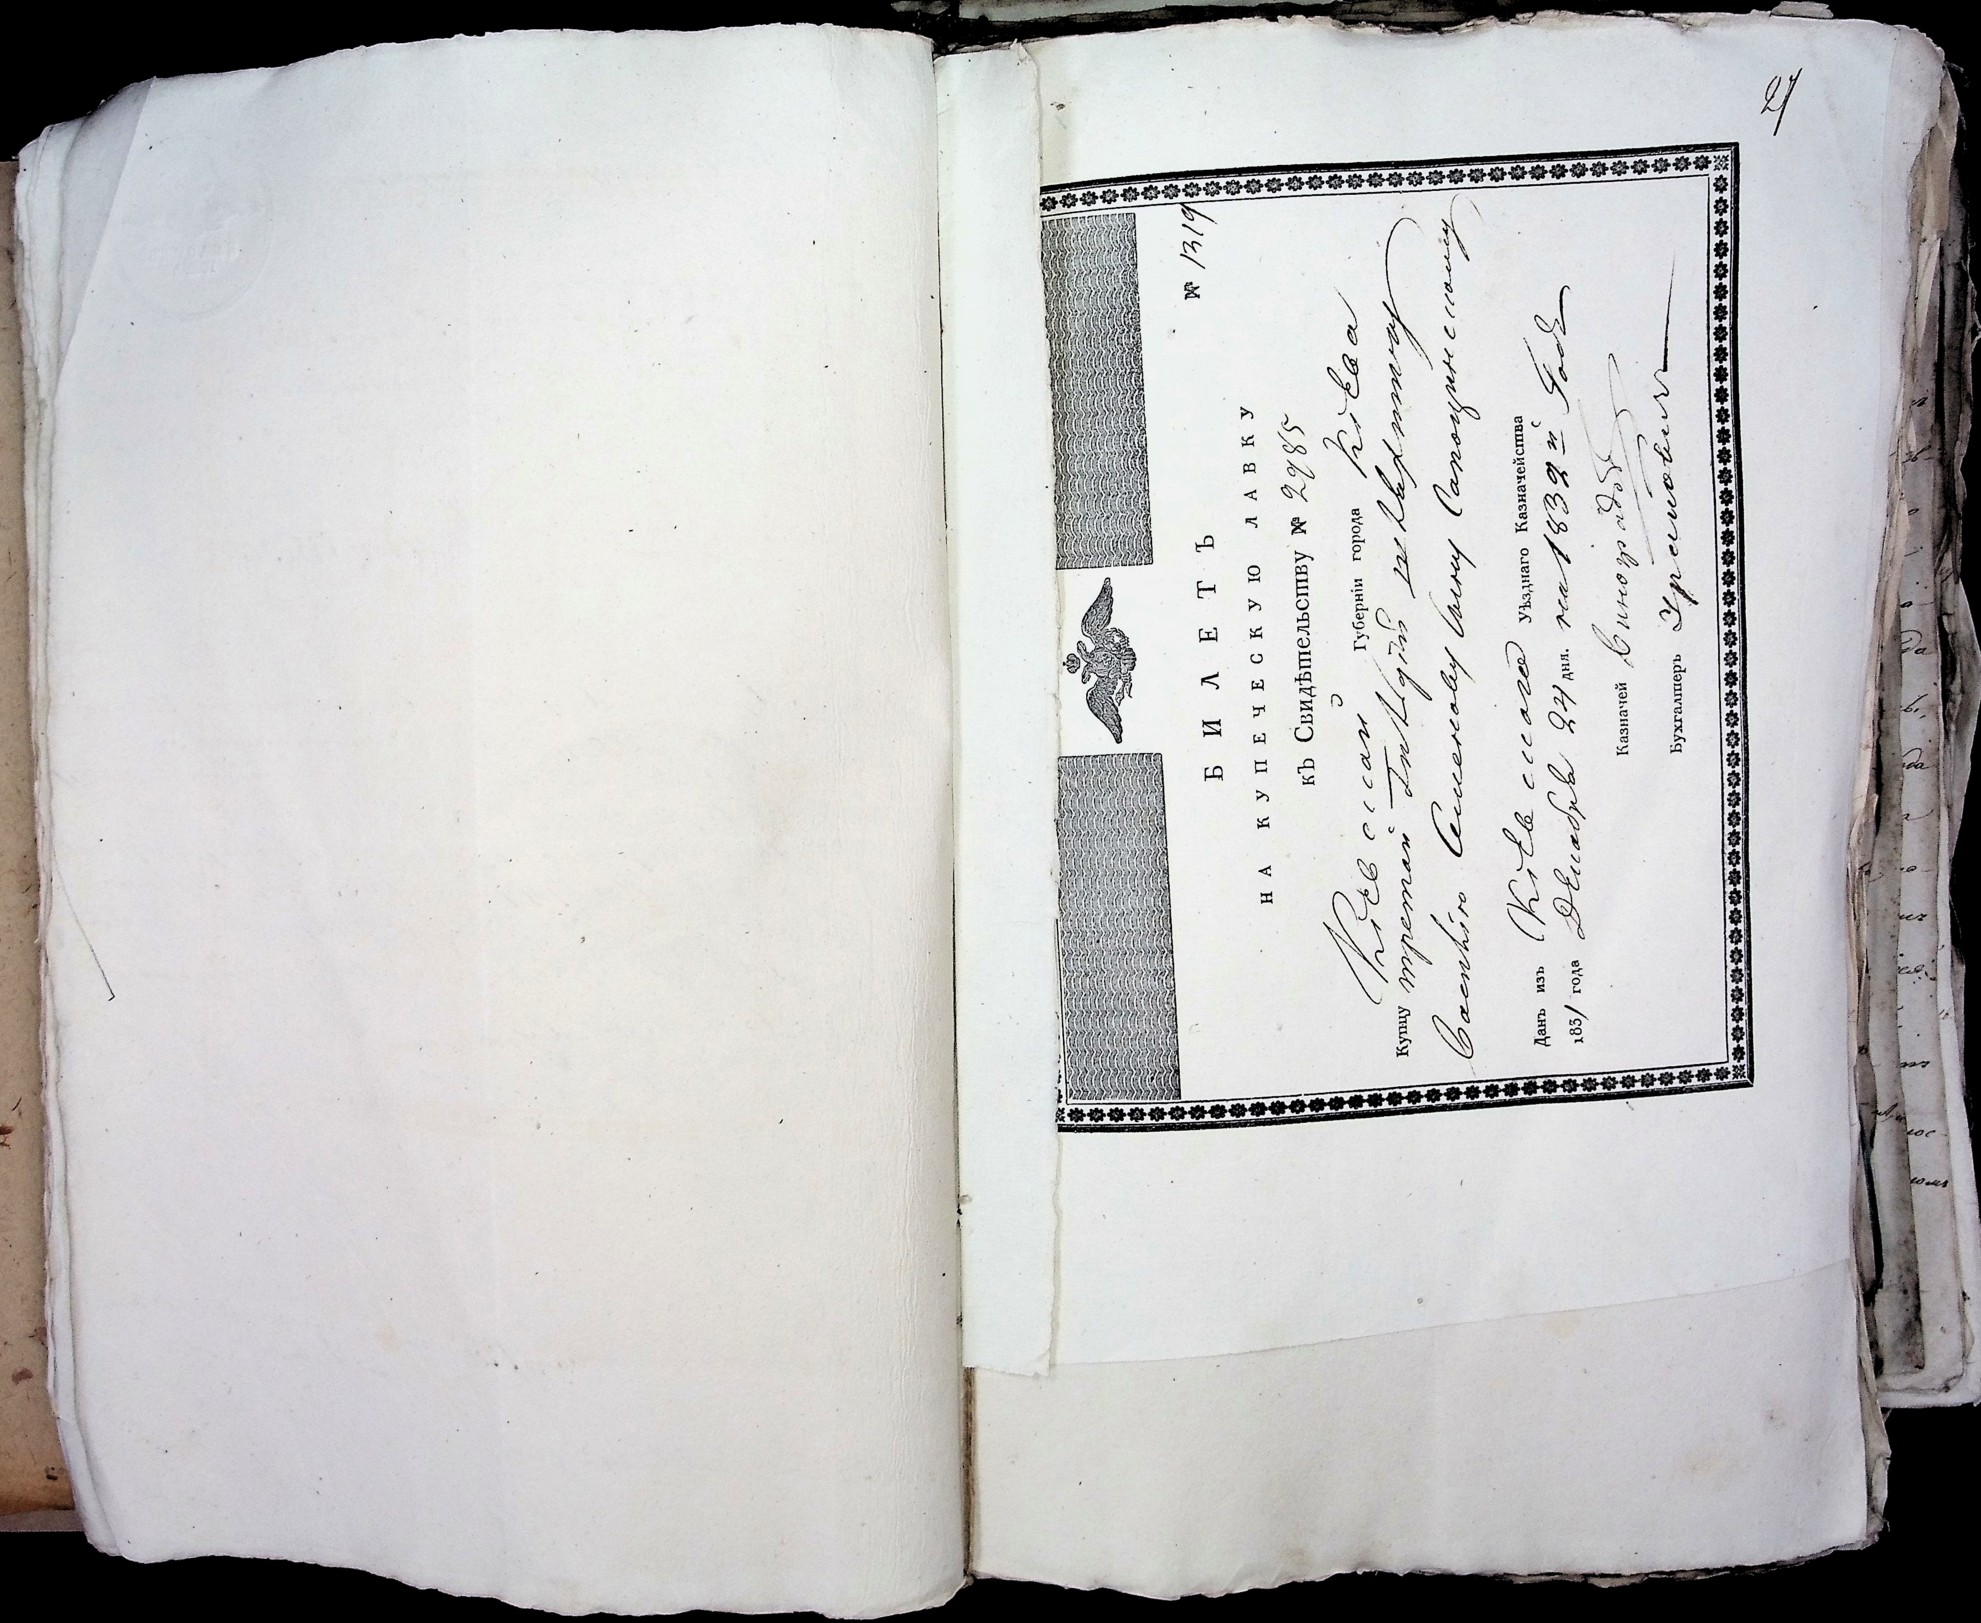 27
№ 1319
БИЛЕТЪ
НА КУПЕЧЕСКУЮ ЛАВКУ
къ Свидѣтельству № 2985
Кіевской Губерніи города Кіева
Купцу третей Гильдіи
Василію Семенову Сыну
Данъ изъ Кіевскаго Уѣзднаго Казначейства
1831 года Декабря 24 дня. на 1832й Годъ
Казначей Виноградов
Бухгалтеръ